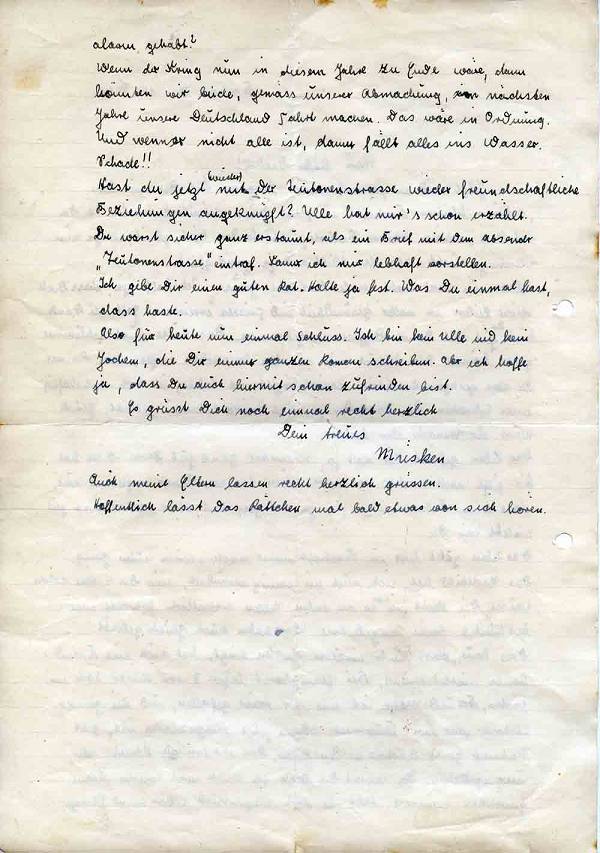 gehabt?
Wenn der Krieg nun in diesem Jahre zu Ende wäre, dann
könnten wir beide, gemäss unserer Abmachung, nächsten
Jahre unsere Deutschland Fahrt machen. Das wäre in Ordnung.
Und wenn er nicht alle ist, dann fällt alles ins Wasser.
Schade!!
Hast du jetzt (wieder) mit der Teutonenstrasse wieder freundschaftliche
Beziehungen angeknüpft? Ulle hat mir's schon erzählt.
Du warst sicher ganz erstaunt, als ein Brief mit dem Absender
„Teutonenstrasse" eintraf. Kann ich mir lebhaft vorstellen.
Ich gebe Dir einen guten Rat. Halte ja fest. Was Du einmal hast,
dass haste.
Also für heute nun einmal Schluss. Ich bin kein Ulle und kein
Jochem, die Dir immer ganzen Roman schreiben. Aber ich hoffe
ja, dass Du auch hiermit schon zufrieden bist.
Es grüsst Dich noch einmal recht herzlich
Dein treues
Müsken
Auch meine Eltern lassen recht herzlich grüssen.
Hoffentlich lässt das Rättchen mal bald etwas von sich hören.